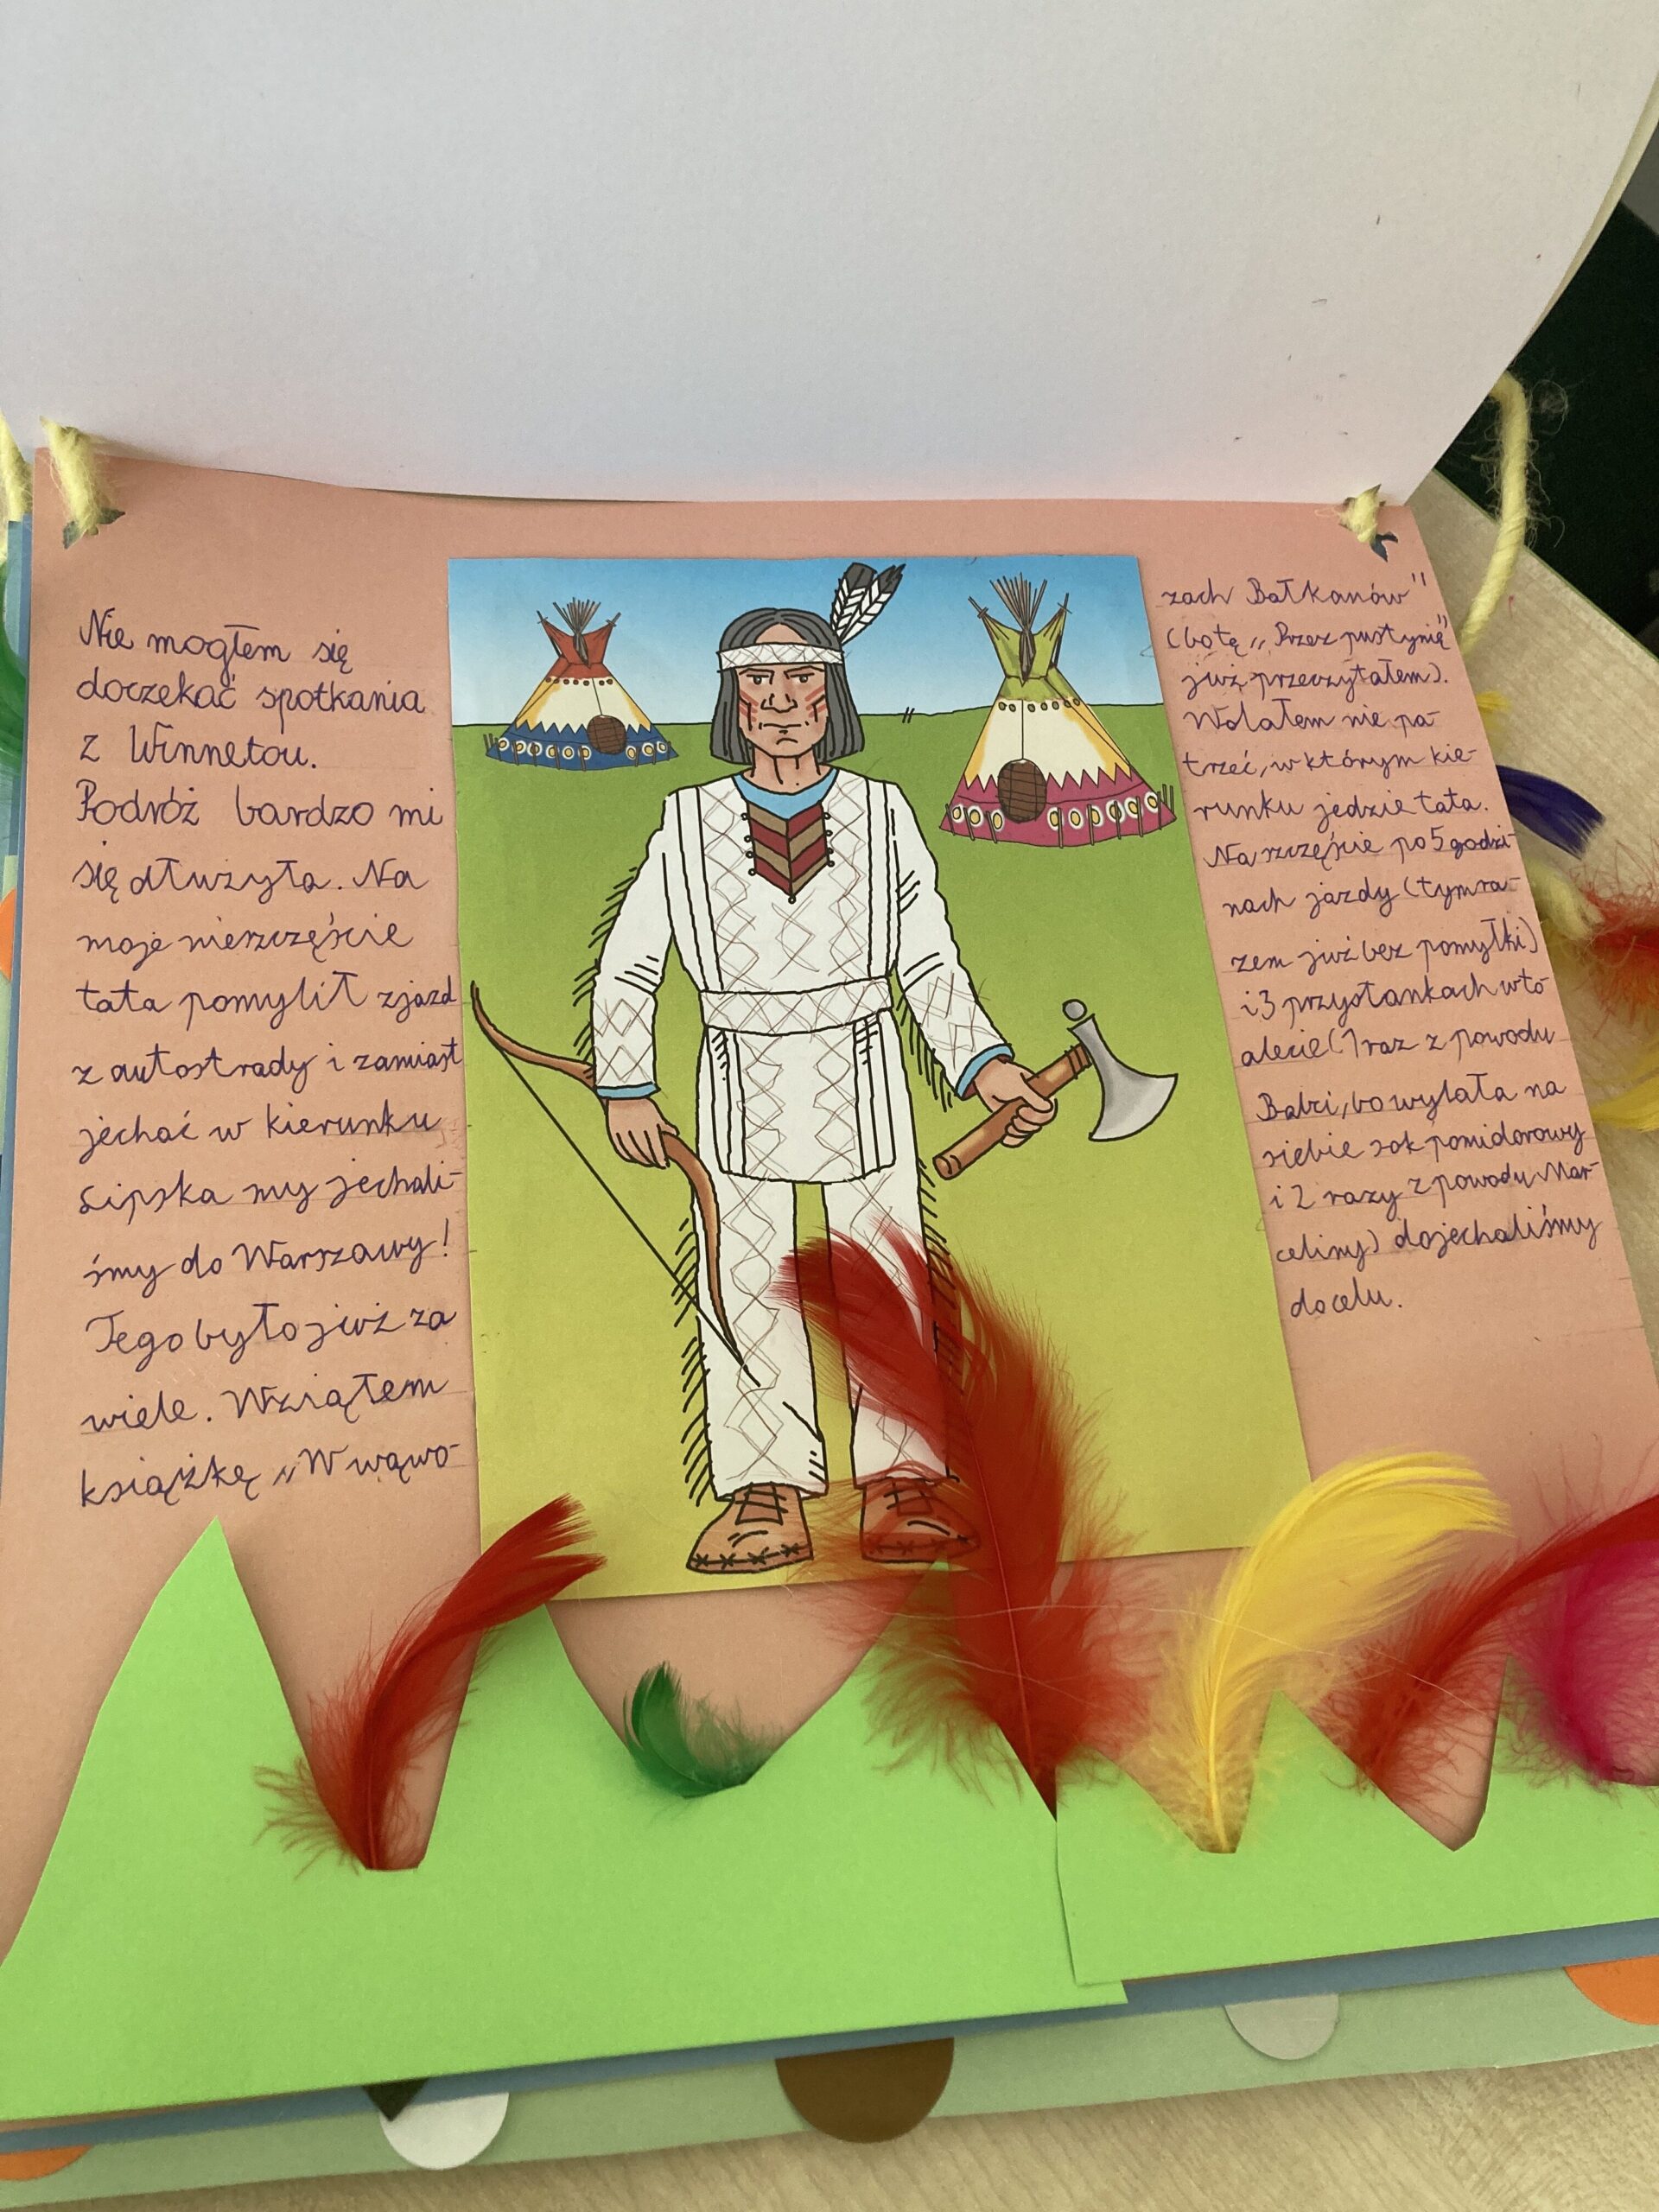 Nie mogłem się
doczekać spotkania
z Winnetou.
Podróż bardzo mi
się dłużyła. Na
moje nieszczęście
tata pomylił zjazd
z autostrady i zamiast
jechać w kierunku
Lipska my jechali-
śmy do Warszawy!
Tego było już za
wiele. Wziąłem
książkę „W wąwo-
zach Bałkanów"
(botę „Przez pustynię"
już przeczytałem).
Wolałem nie pa-
trzeć, w którym kie-
runku jedzie tata.
Na szczęście po 5 godzi-
nach jazdy (tym ra-
zem już bez pomyłki)
i 3 przystankach w tó-
alecie (1 raz z powodu
Babci, bo wylała na
siebie sok pomidorowy
i 2 razy z powodu Mar-
celiny) dojechaliśmy
do celu.